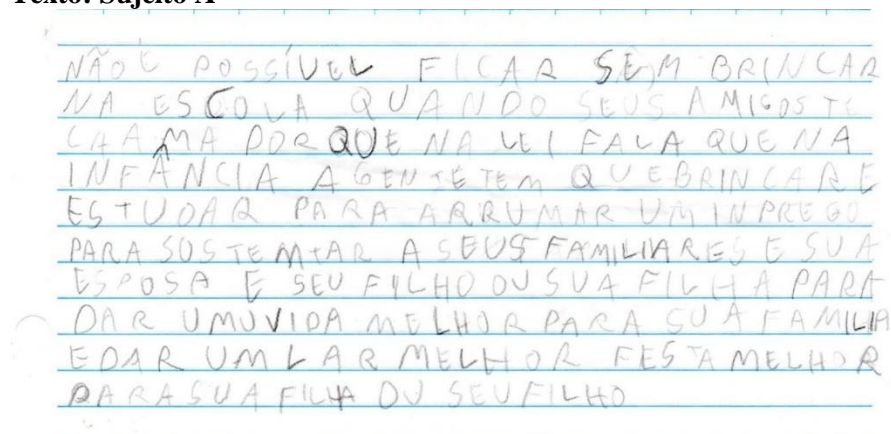 Texto: Sujeito A
NÃO E POSSÍVEL FICAR SEM BRINCAR
NA ESCOLA QUANDO SEUS AMIGOS TE
CHAMA PORQUE NA LEI FALA QUE NA
INFÂNCIA A GENTE TEM QUE BRINCAR E
ESTUDAR PARA ARRUMAR UM INPREGO
PARA SUSTEMTAR A SEUS FAMILIARES E SUA
ESPOSA E SEU FILHO OU SUA FILHA PARA
DAR UMUVIDA MELHOR PARA SUA FAMILIA
E DAR UM LAR MELHOR FESTA MELHOR
PARA SUA FILHA OU SEU FILHO